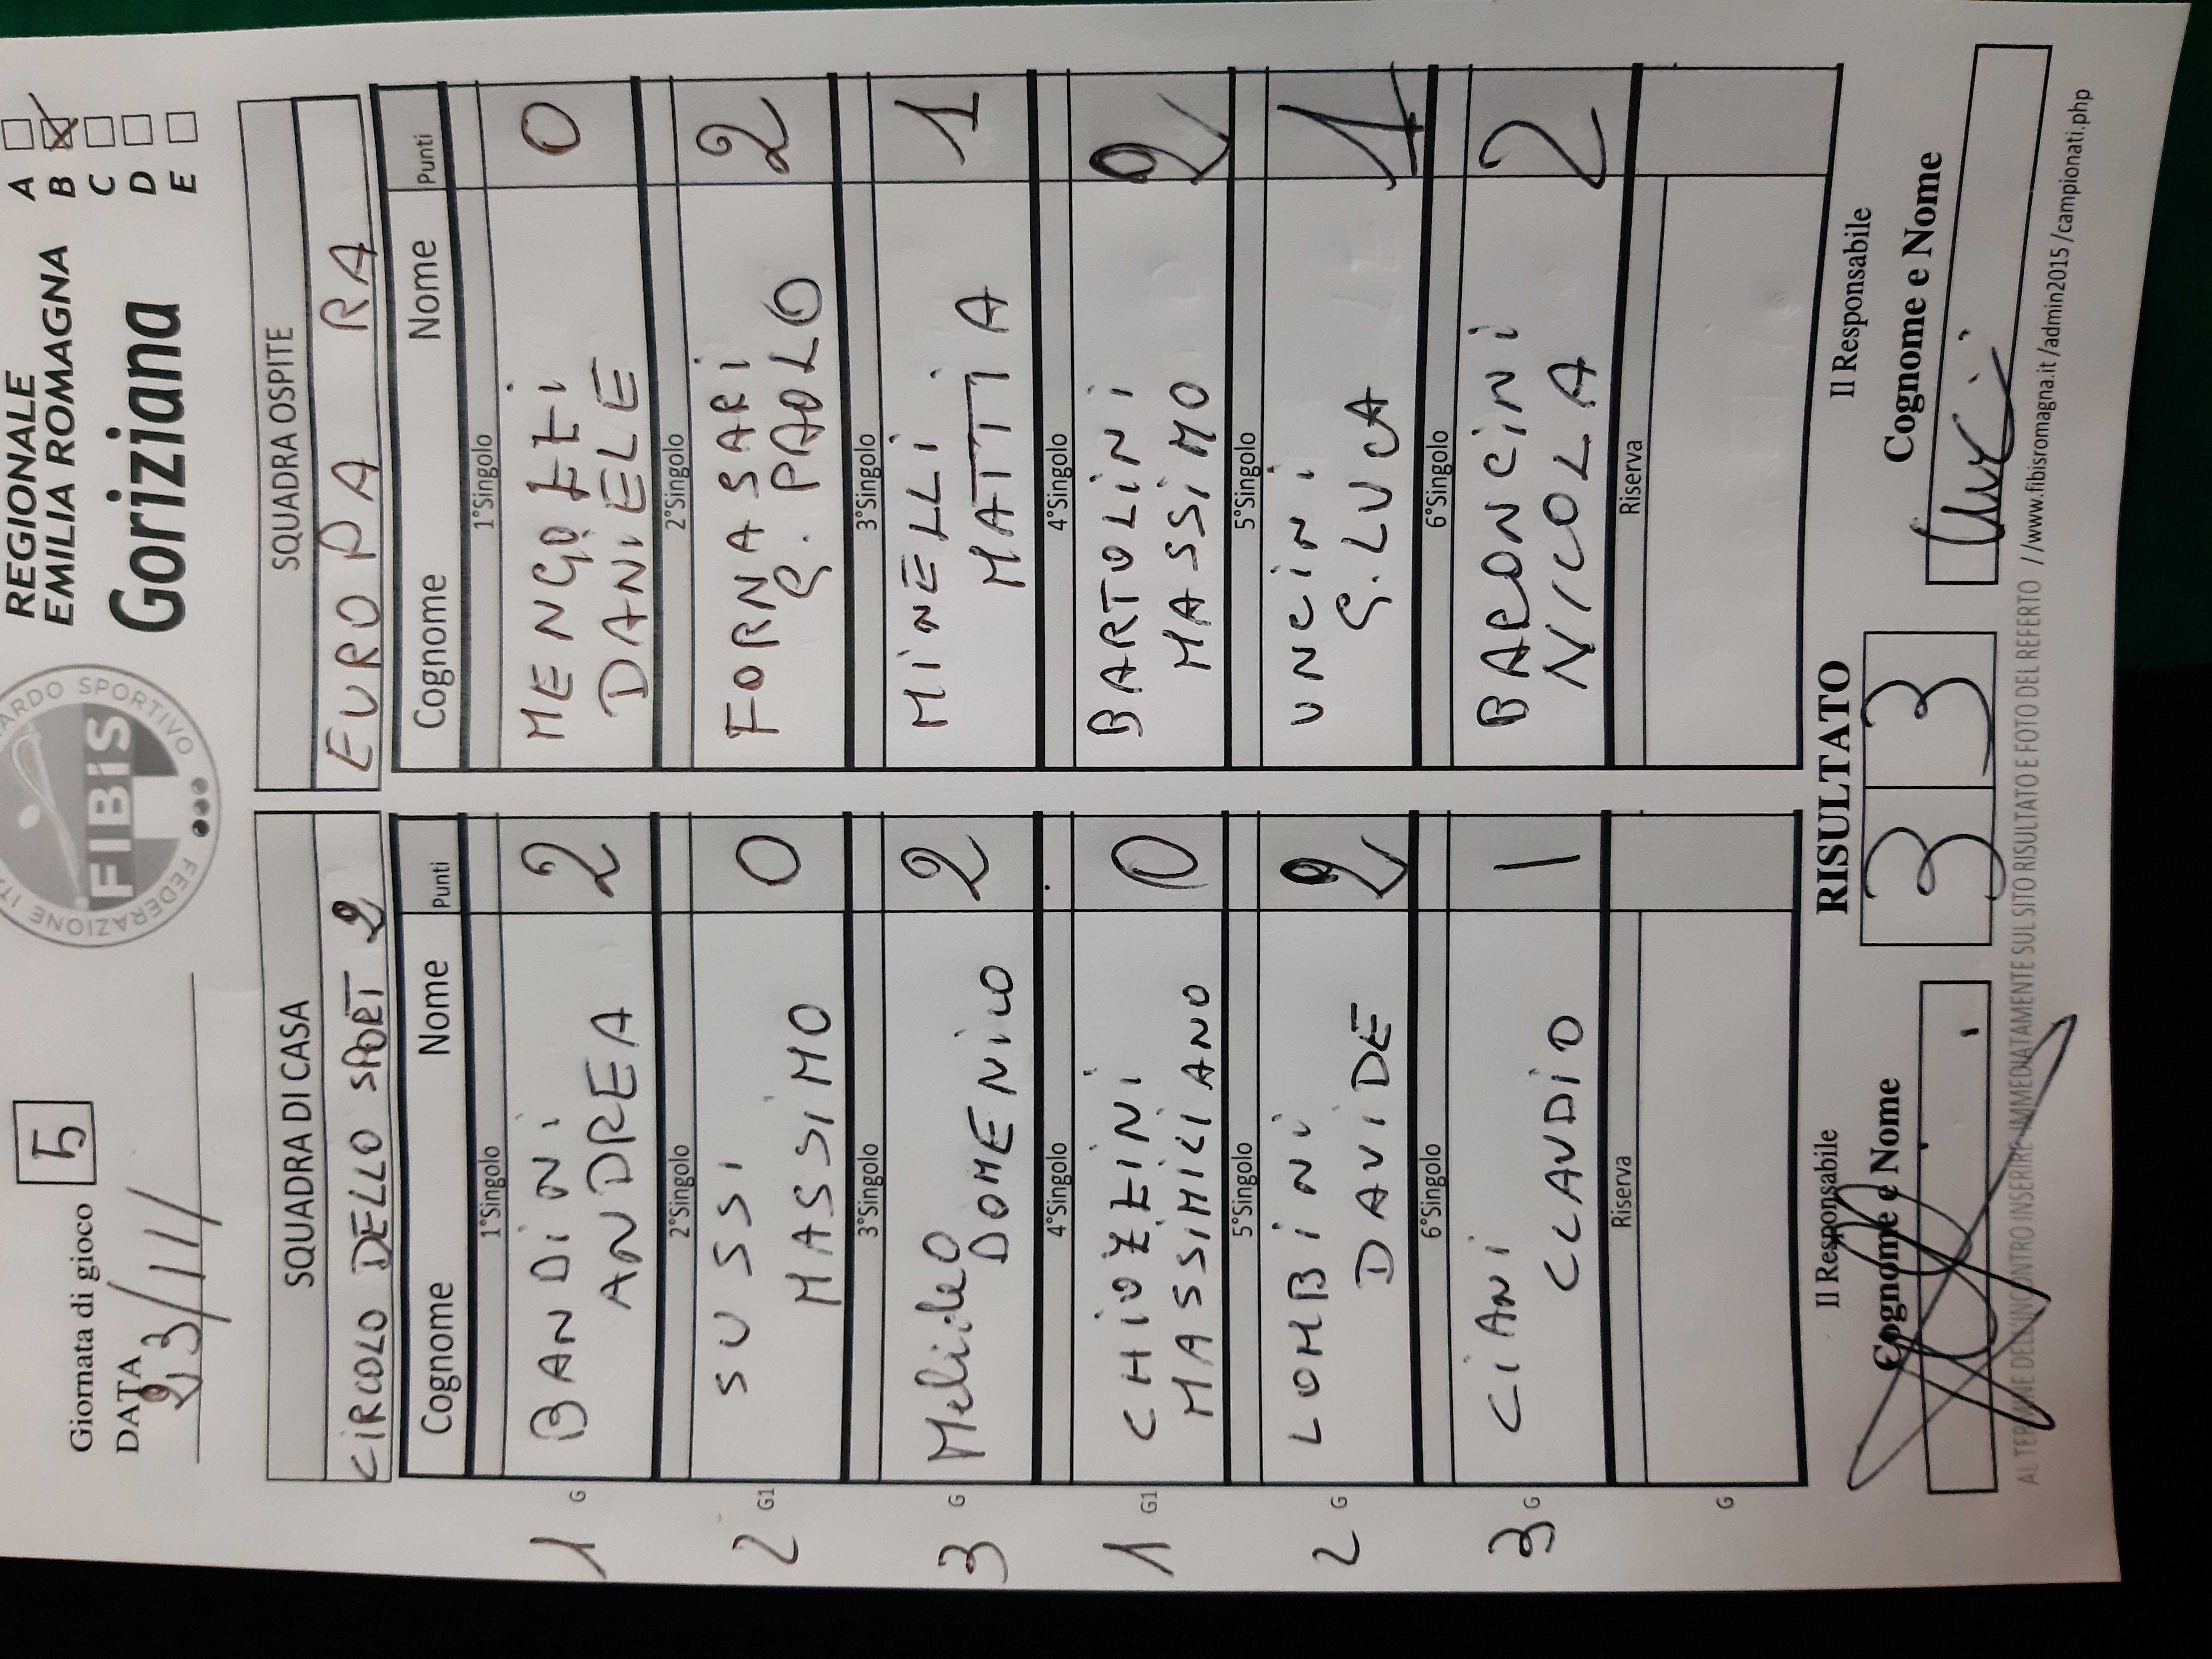 Giornata di gioco 5
DATA
23/11/
FEDERAZIONE
ARDO SPORTIVO
FIBiS
REGIONALE
EMILIA ROMAGNA
Goriziana
A
B
C
D
E
SQUADRA DI CASA
CIRCOLO DELLO SPORT 2
Cognome Nome Punti
1°Singolo
1 G BANDINI ANDREA 2
2°Singolo
2 G1 SUSSI MASSIMO 0
3°Singolo
3 G DOMENICO 2
4°Singolo
1 G1 CHIOZZINI MASSIMILIANO 0
5°Singolo
2 G LOMBINI DAVIDE 2
6°Singolo
3 G CIANI CLAUDIO 1
Riserva
G
SQUADRA OSPITE
EUROPA RA
Cognome Nome Punti
1°Singolo
MENGOZZI DANIELE 0
2°Singolo
FORNASARI G. PAOLO 2
3°Singolo
MINELLI MATTIA 1
4°Singolo
BARTOLINI MASSIMO 2
5°Singolo
UNCINI G. LUCA 1
6°Singolo
BARONCINI NICOLA 2
Riserva
Il Responsabile
Cognome e Nome
RISULTATO
3 3
Il Responsabile
Cognome e Nome
AL TERMINE DELL'INCONTRO INSERIRE IMMEDIATAMENTE SUL SITO RISULTATO E FOTO DEL REFERTO //www.fibisromagna.it /admin2015 /campionati.php